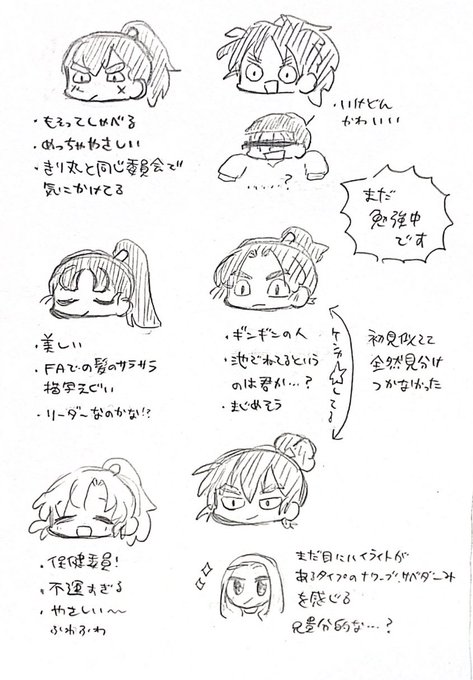 ・もそってしゃべる
・めっちゃやさしい
・きり丸と同じ委員会で
気にかけてる
・いけどん
かわいい
・・・・?
まだ
勉強中
です
・美しい
・FAでの髪のサラサラ
描写えぐい
・リーダーなのかな!?
・ギンギンの人
・池でねてるという
のは君か…?
・まじめそう
ケンカ☆してる
初見似てて
全然見分け
つかなかった
・保健委員!
・不運すぎる
・やさしい〜
ふわふわ
まだ目にハイライトが
あるタイプのナワーブ・サベダーみ
を感じる
兄貴分的な…?